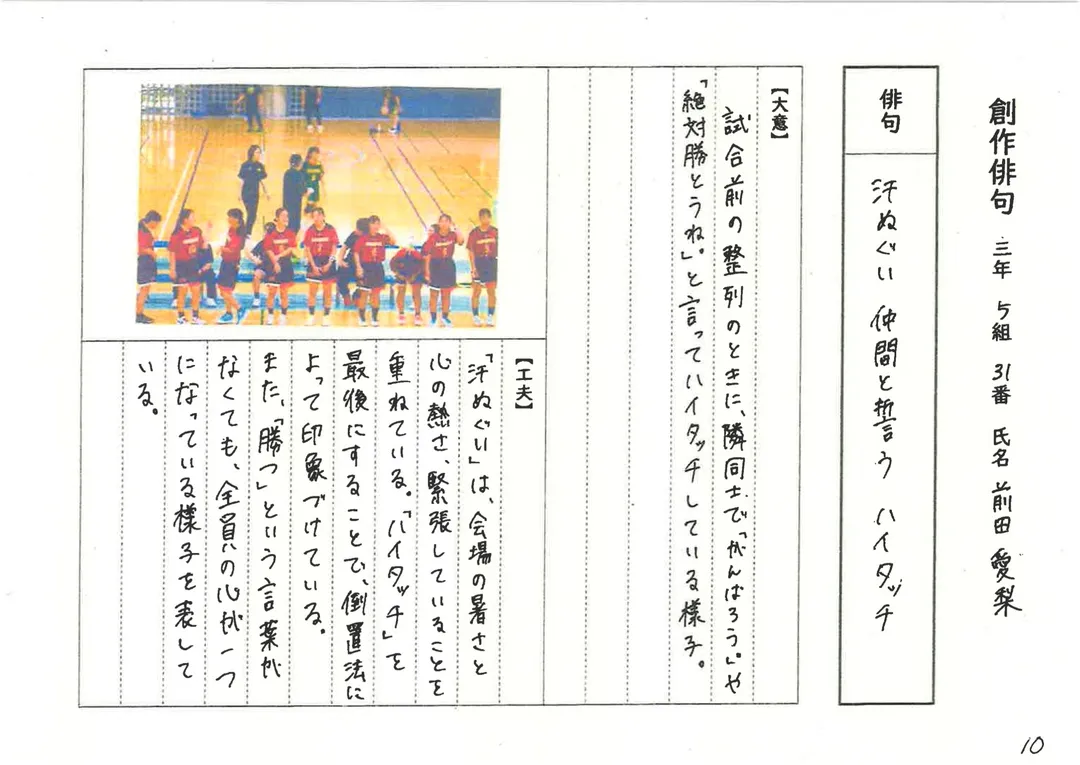 創作俳句 三年 5組 31番 氏名 前田 愛梨
俳句
汗ぬぐい 仲間と誓う ハイタッチ
【大意】
試合前の整列のときに、隣同士で「がんばろう。」や
「絶対勝とうね。」と言ってハイタッチしている様子。
【工夫】
「汗ぬぐい」は、会場の暑さと
心の熱さ、緊張していることを
重ねている。「ハイタッチ」を
最後にすることで、倒置法に
よって印象づけている。
また、「勝つ」という言葉が
なくても、全員の心が一つ
になっている様子を表して
いる。
10